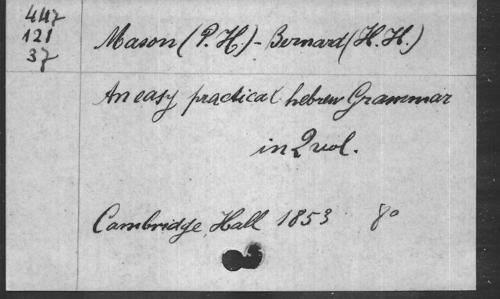 447
121
37
Mason (P. H.) - Bernard (H. H.)
An easy practical hebrew Grammar
in 2 vol.
Cambridge, Hall 1853 8o